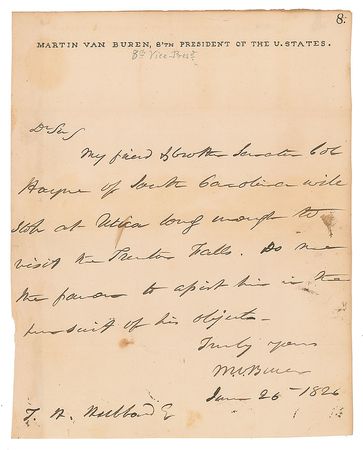 8.
MARTIN VAN BUREN, 8'TH PRESIDENT OF THE U. STATES.
8th Vice-Pres't
Dr Sir
My friend & brother Senator Col
Hayne of South Carolina will
stop at Utica long enough to
visit the Trenton Falls. Do me
the favor to assist him in the
pursuit of his object.
Truly yours
M V Buren
June 26 1826
T. H. Hubbard E